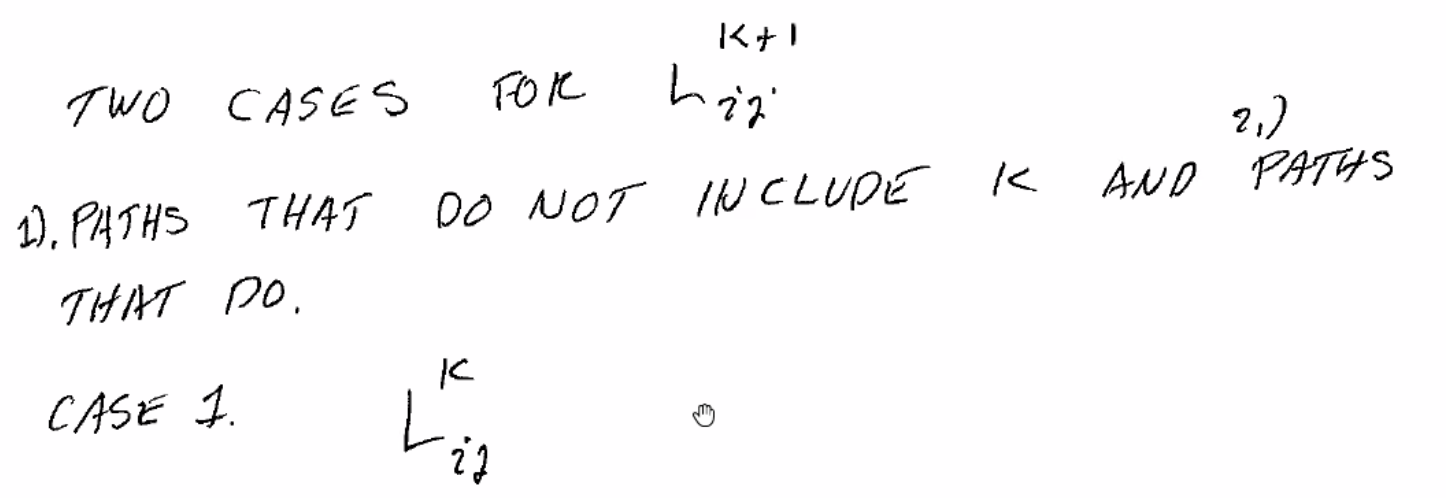 TWO CASES FOR L_{ij}^{K+1}
1). PATHS THAT DO NOT INCLUDE K AND 2,) PATHS
THAT DO.
CASE 1. L_{ij}^{K}